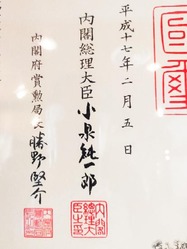 平成十七年二月五日
内閣総理大臣 小泉純一郎
内閣府賞勲局長 勝野堅介
内閣総理大臣之印